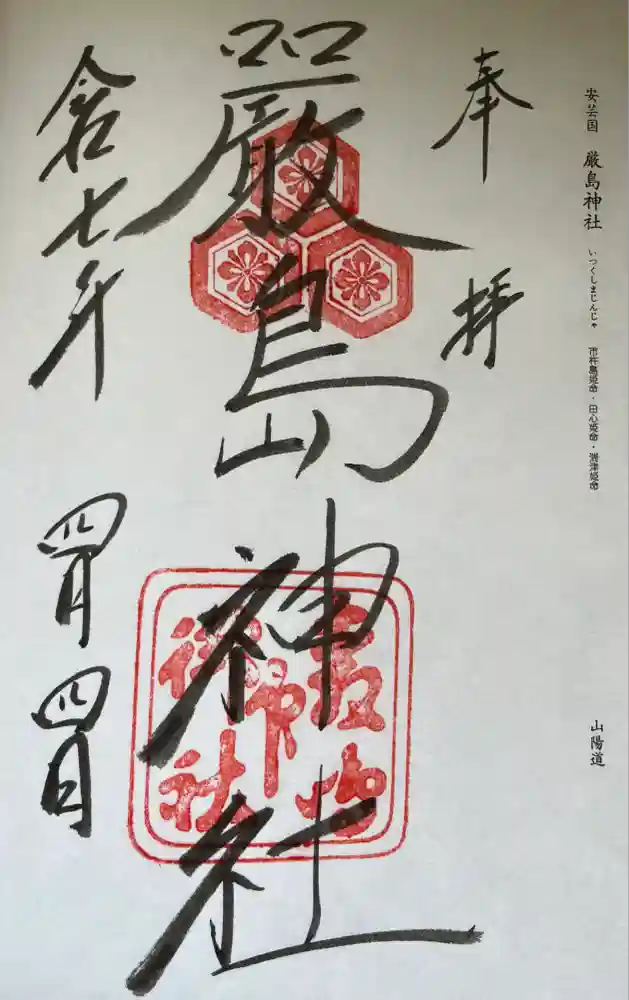 安芸国 厳島神社 いつくしまじんじゃ 市杵島姫命・田心姫命・湍津姫命
山陽道
奉拝
嚴島神社
令七年 四月四日